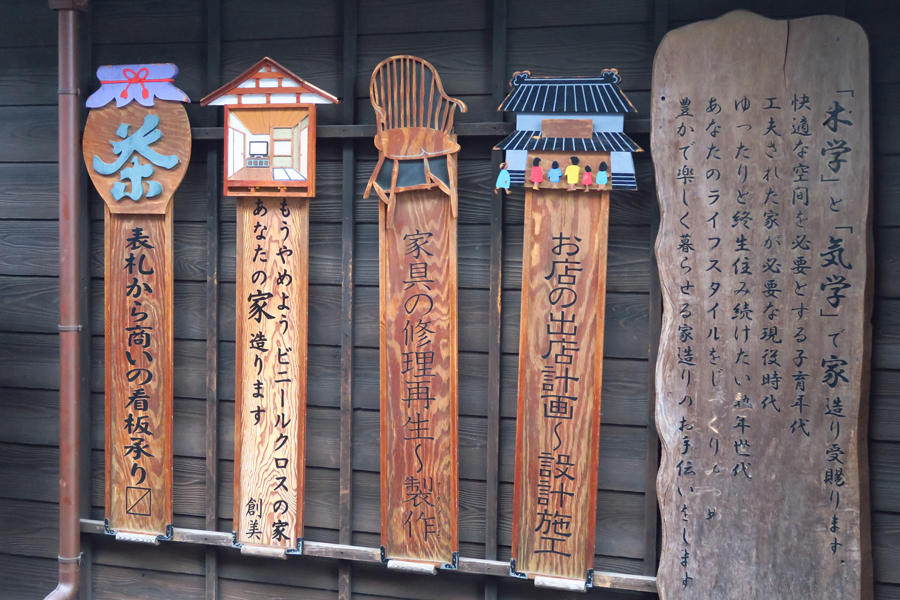 「木学」と「気学」で家造り受賜ります
快適な空間を必要とする子育年代
工夫された家が必要な現役時代
ゆったりと終生住み続けたい熟年世代
あなたのライフスタイルをじっくり
豊かで楽しく暮らせる家造りのお手伝いをします
お店の出店計画〜設計施工
家具の修理再生〜製作
もうやめよう ビニールクロスの家
あなたの家造ります
創美
茶
表札から商いの看板承り〼